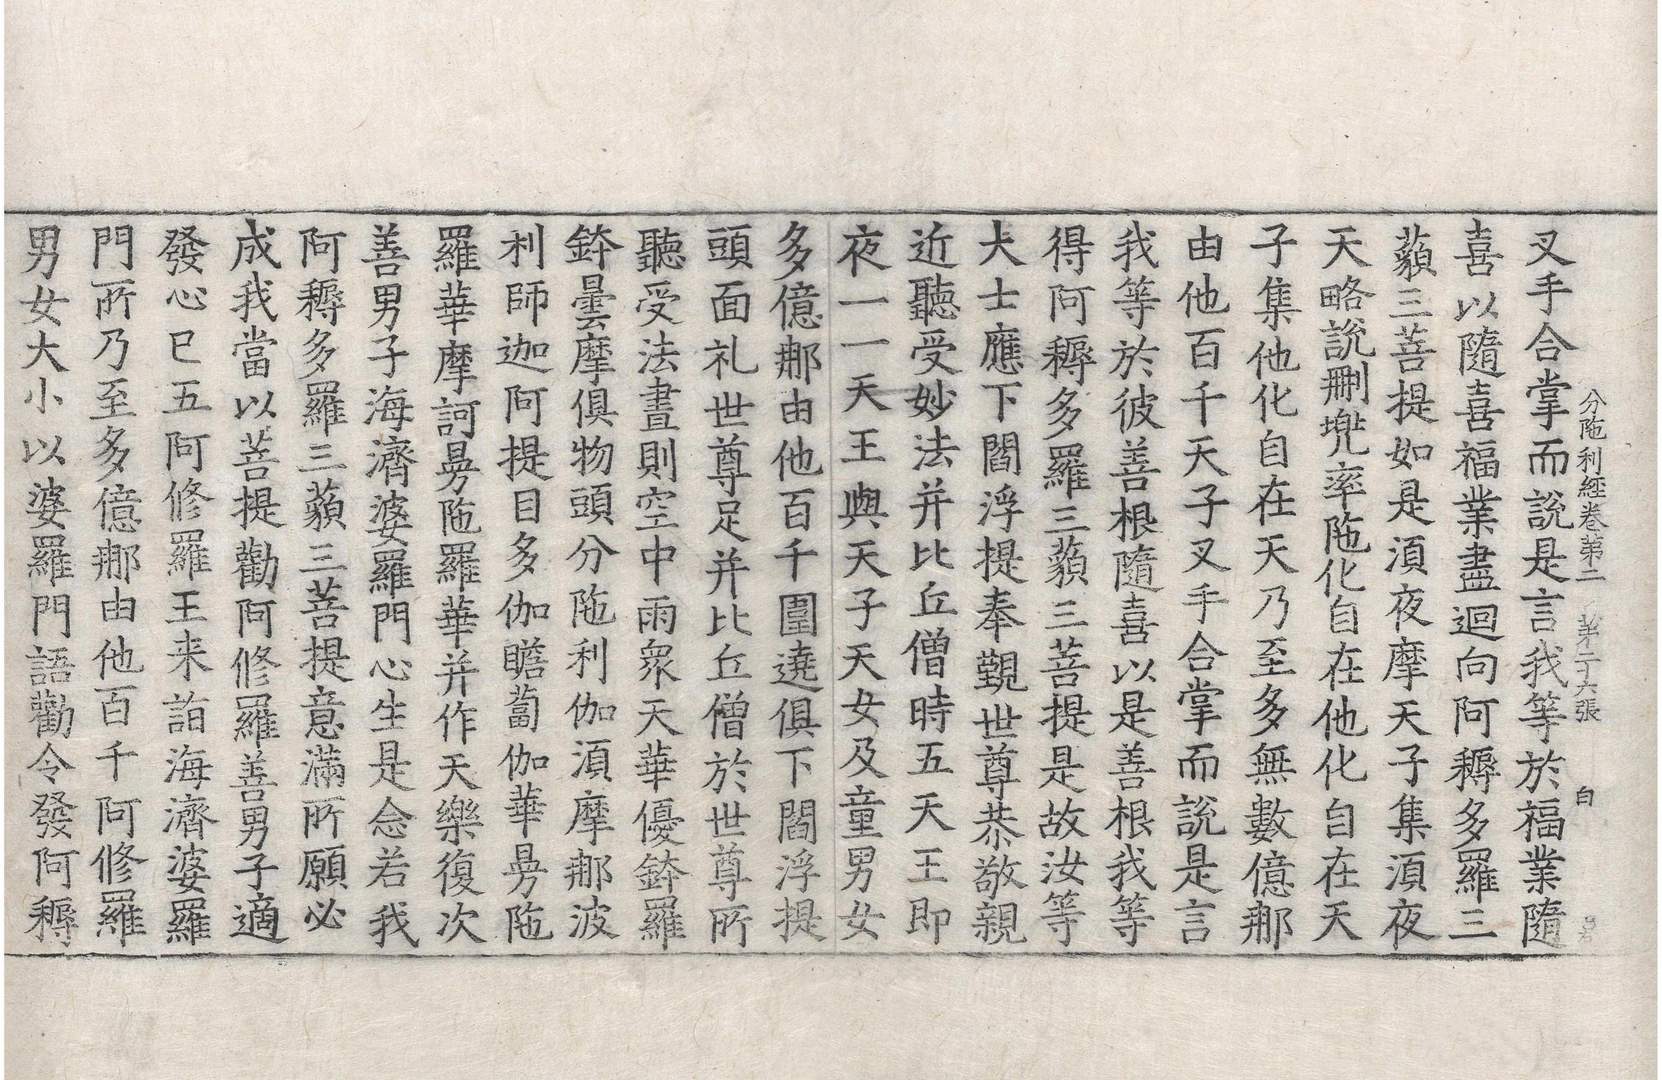 分陁利經卷第二 第二十六張 白
叉手合掌而說是言我等於福業隨
喜以隨喜福業盡迴向阿耨多羅三
藐三菩提如是須夜摩天子集須夜
天略說刪兠率陁化自在他化自在天
子集他化自在天乃至多無數億𨚗
由他百千天子叉手合掌而說是言
我等於彼善根隨喜以是善根我等
得阿耨多羅三藐三菩提是故汝等
大士應下閻浮提奉覲世尊恭敬親
近聽受妙法并比丘僧時五天王即
夜一一天王與天子天女及童男女
多億𨚗由他百千圍遶俱下閻浮提
頭面礼世尊足并比丘僧於世尊所
聽受法晝則空中雨衆天華優鉢羅
鉢曇摩俱物頭分陁利伽須摩𨚗波
利師迦阿提目多伽瞻蔔伽華㝵陁
羅華摩訶㝵陁羅華并作天樂復次
善男子海濟婆羅門心生是念若我
阿耨多羅三藐三菩提意滿所願必
成我當以菩提勸阿修羅善男子適
發心已五阿修羅王来詣海濟婆羅
門所乃至多億𨚗由他百千阿修羅
男女大小以婆羅門語勸令發阿耨